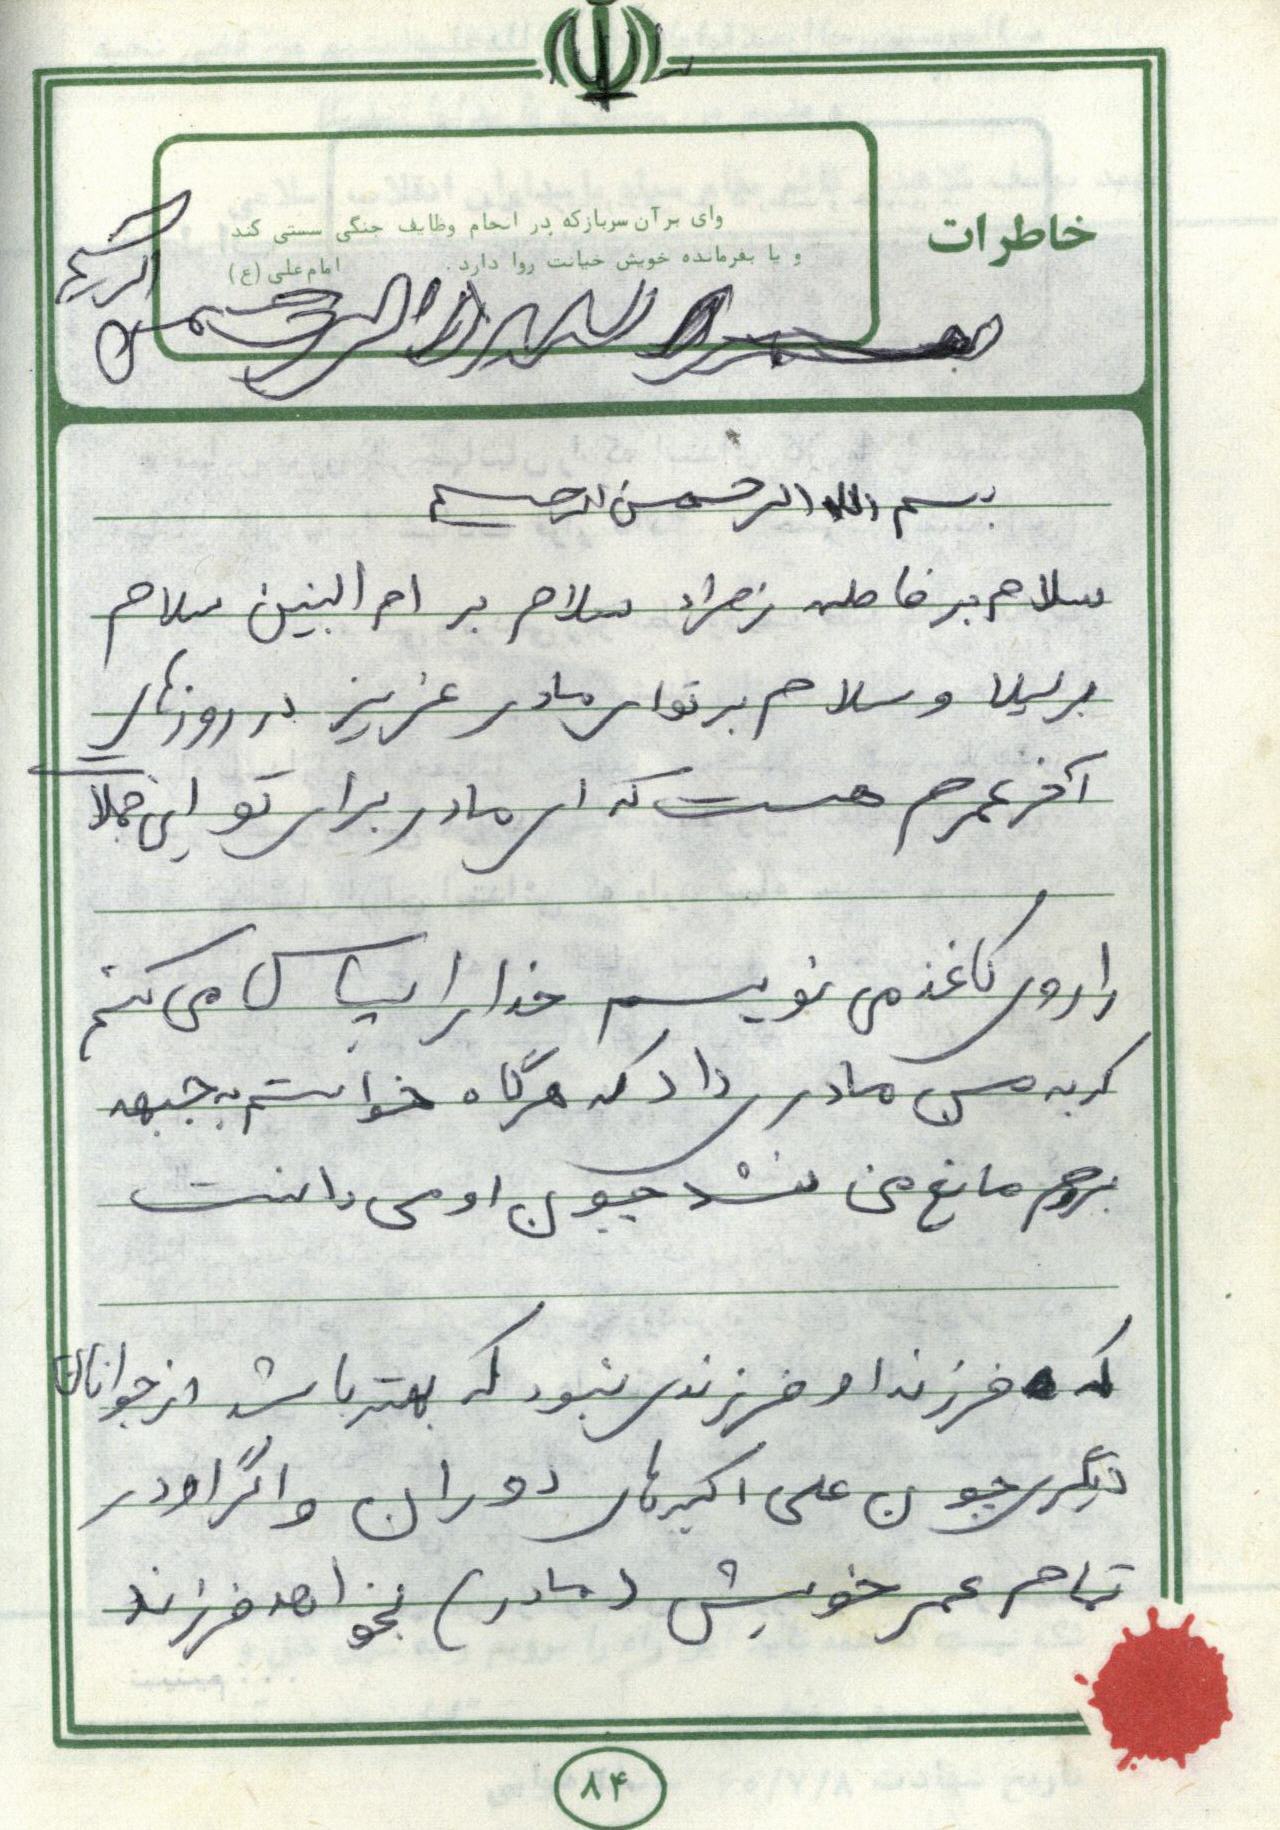 خاطرات
وای بر آن سربازکه در انجام وظایف جنگی سستی کند
و یا بفرمانده خویش خیانت روا دارد. امام علی (ع)
بسم الله الرحمن
الرحیم
بسم الله الرحمن الرحیم
سلام بر فاطمه زهرا، سلام بر ام البنین سلام
بر لیلا و سلام بر توای مادر عزیز در روزهای
آخر عمرم هست که ای مادر برای تو این جملات
را روی کاغذ می نویسم خدایرا سپاس می کنم
که به من مادری داد که هرگاه خواستم به جبهه
بروم مانع من نشد چون او می دانست
که فرزند او فرزندی نبود که بهتر باشد از جوانان
دیگری چون علی اکبرهای دوران و اگر او در
تمام عمر خویش (مادر) نخواهد فرزند
۸۴